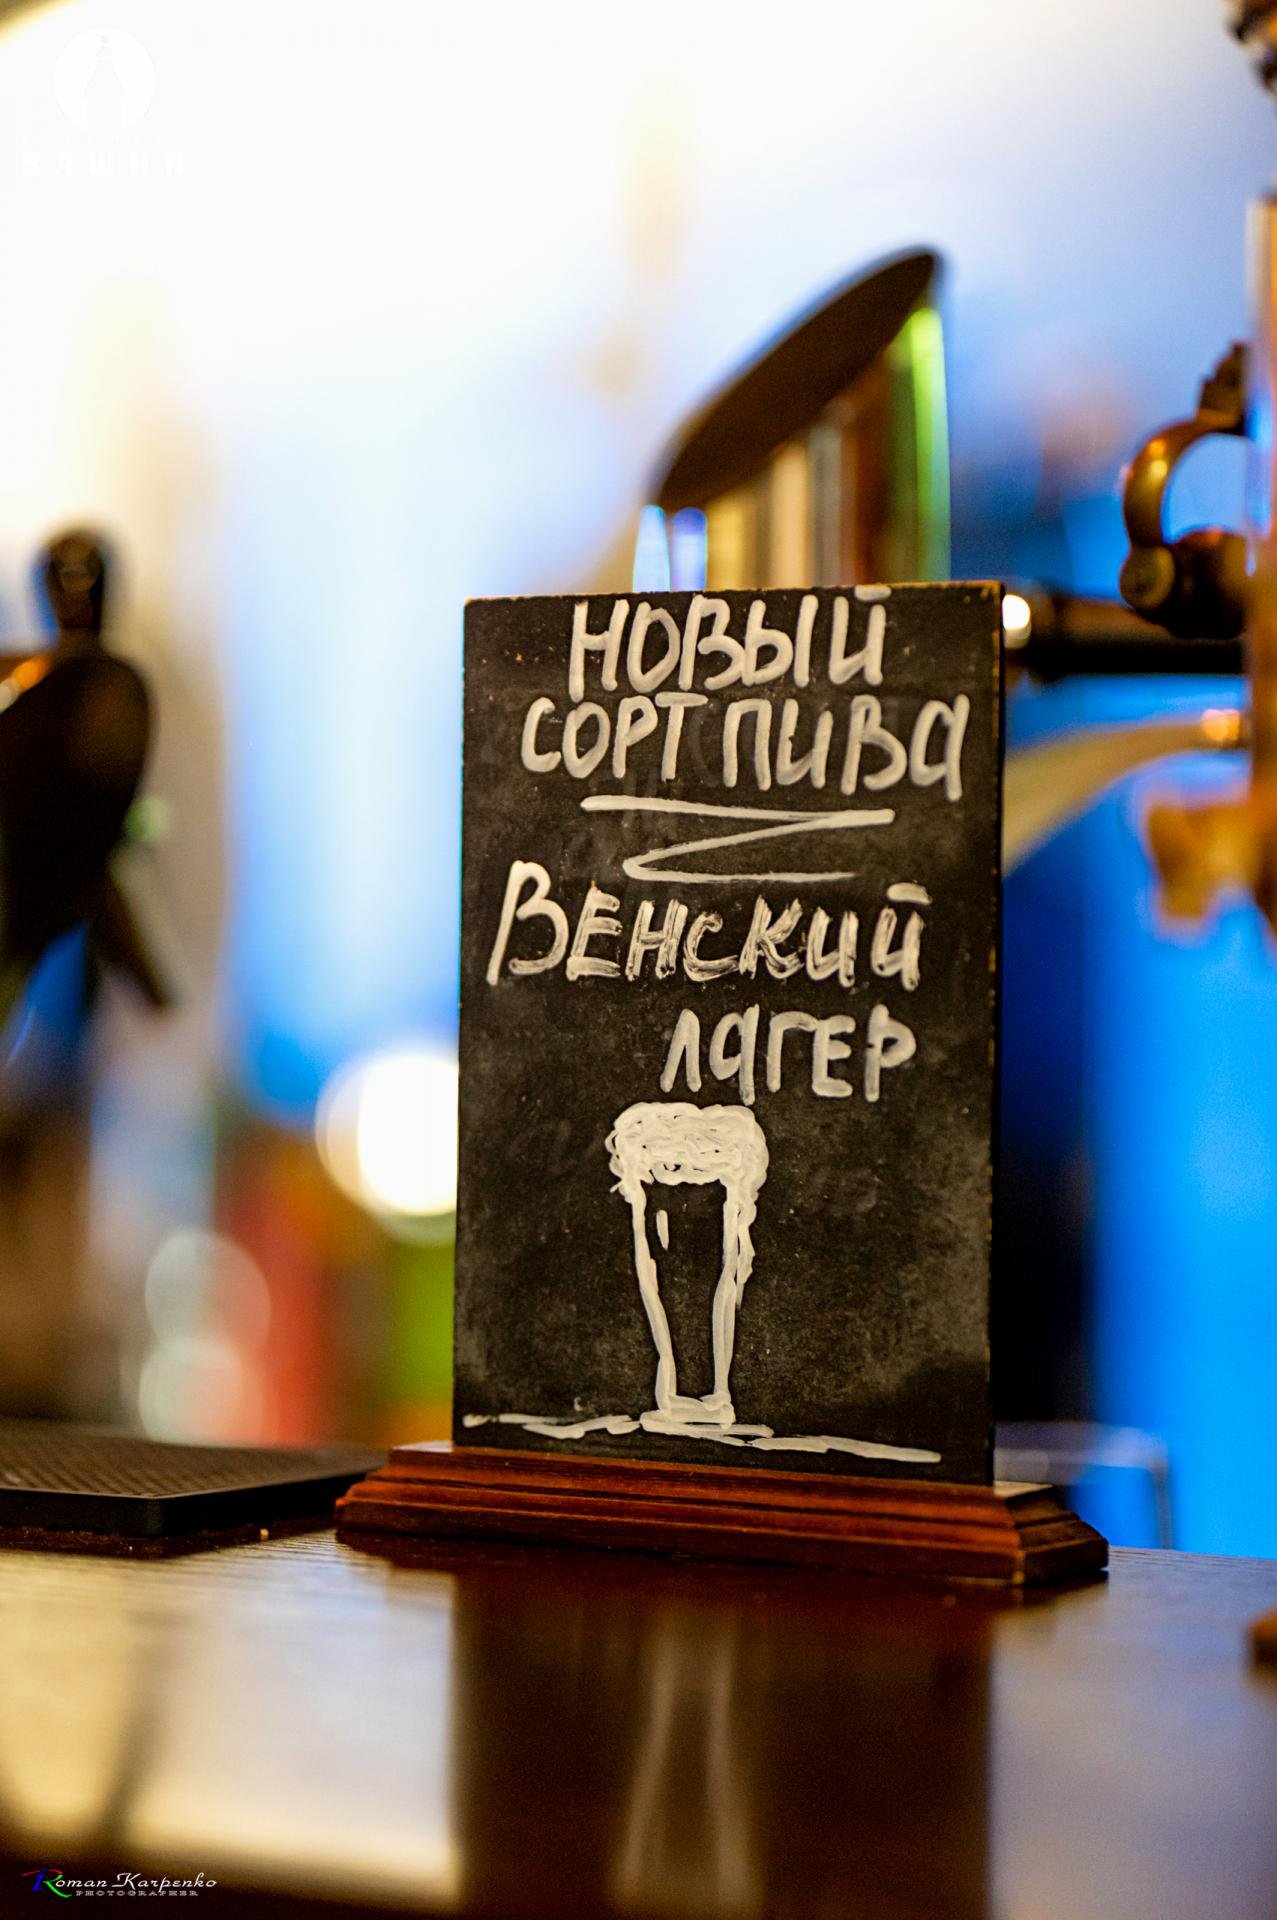 БАШНЯ
НОВЫЙ
СОРТ ПИВА
ВЕНСКИЙ
ЛАГЕР
Roman Karpenko
PHOTOGRAPHER